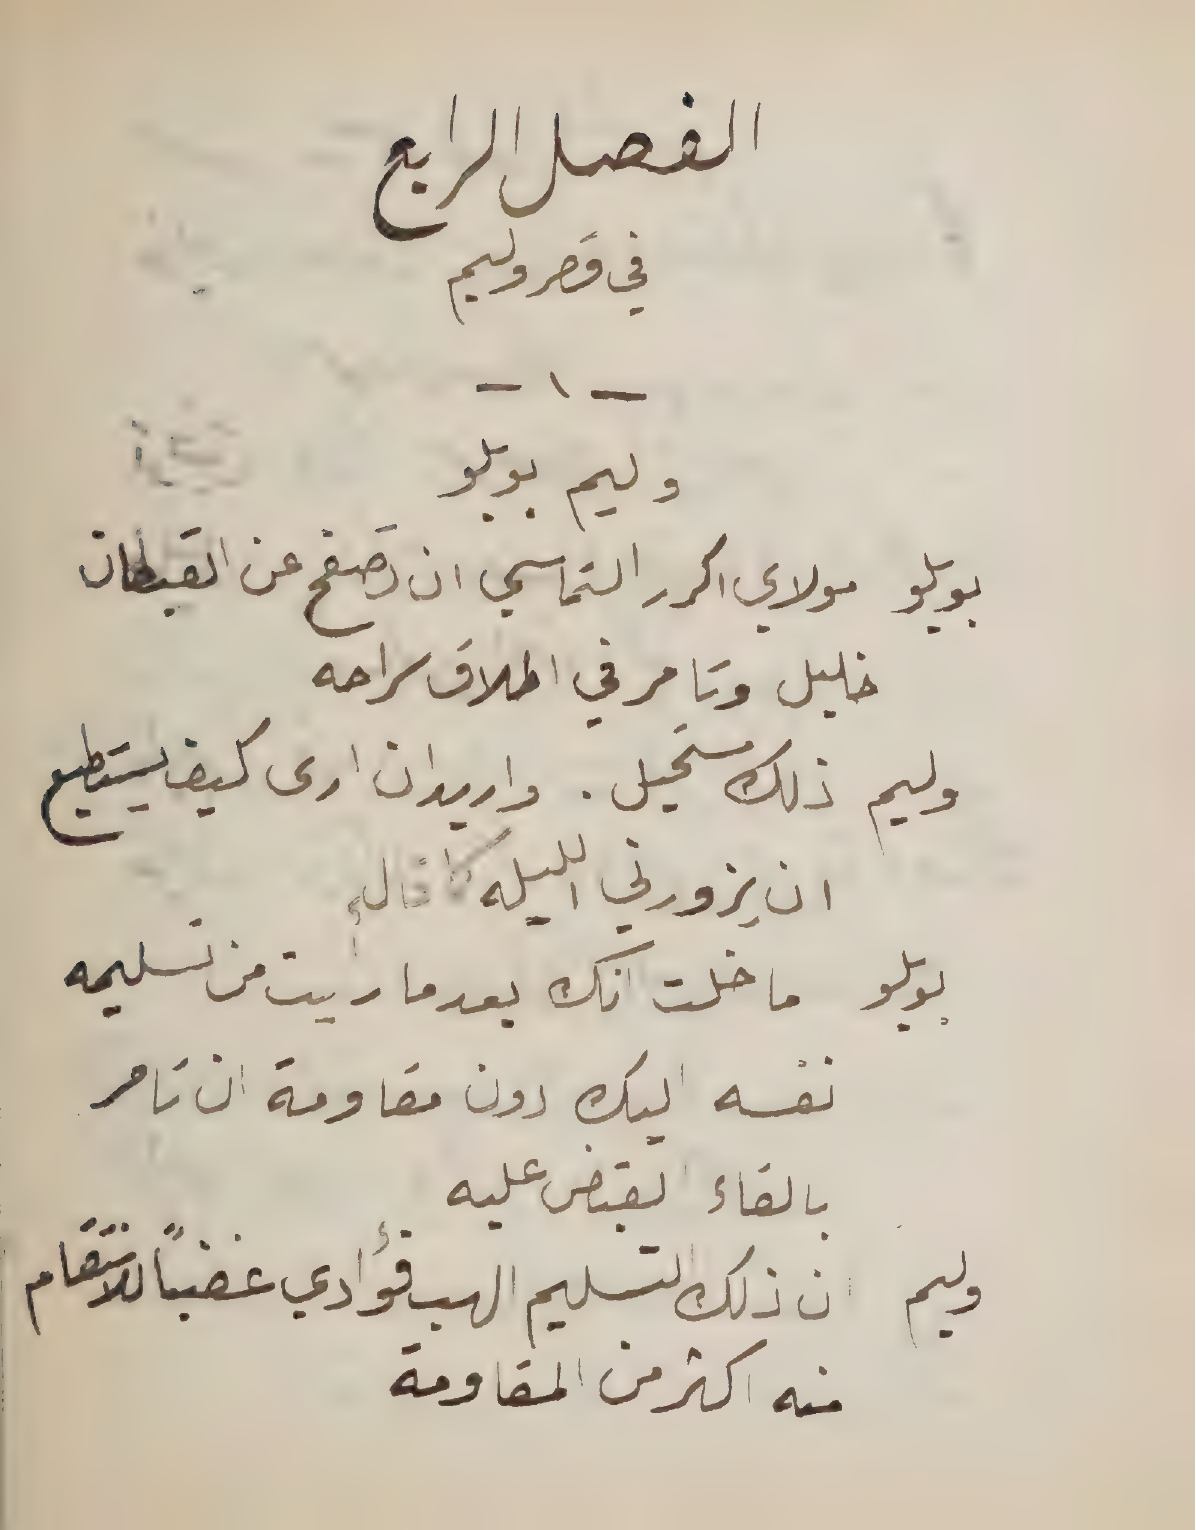 الفصل الرابع
في قصر وليم
— ١ —
وليم بوبلو
بوبلو مولاي اكرر التماسي ان تصفح عن القبطان
خليل وتامر في اطلاق سراحه
وليم ذلك مستحيل . واريد ان ارى كيف يستطيع
ان يزورني الليله كما قال
بوبلو ما خلت انك بعد ما رييت من تسليمه
نفسه اليك دون مقاومة ان تامر
بالقاء القبض عليه
وليم ان ذلك التسليم الهب فؤادي غضباً للانتقام
منه اكثر من المقاومة